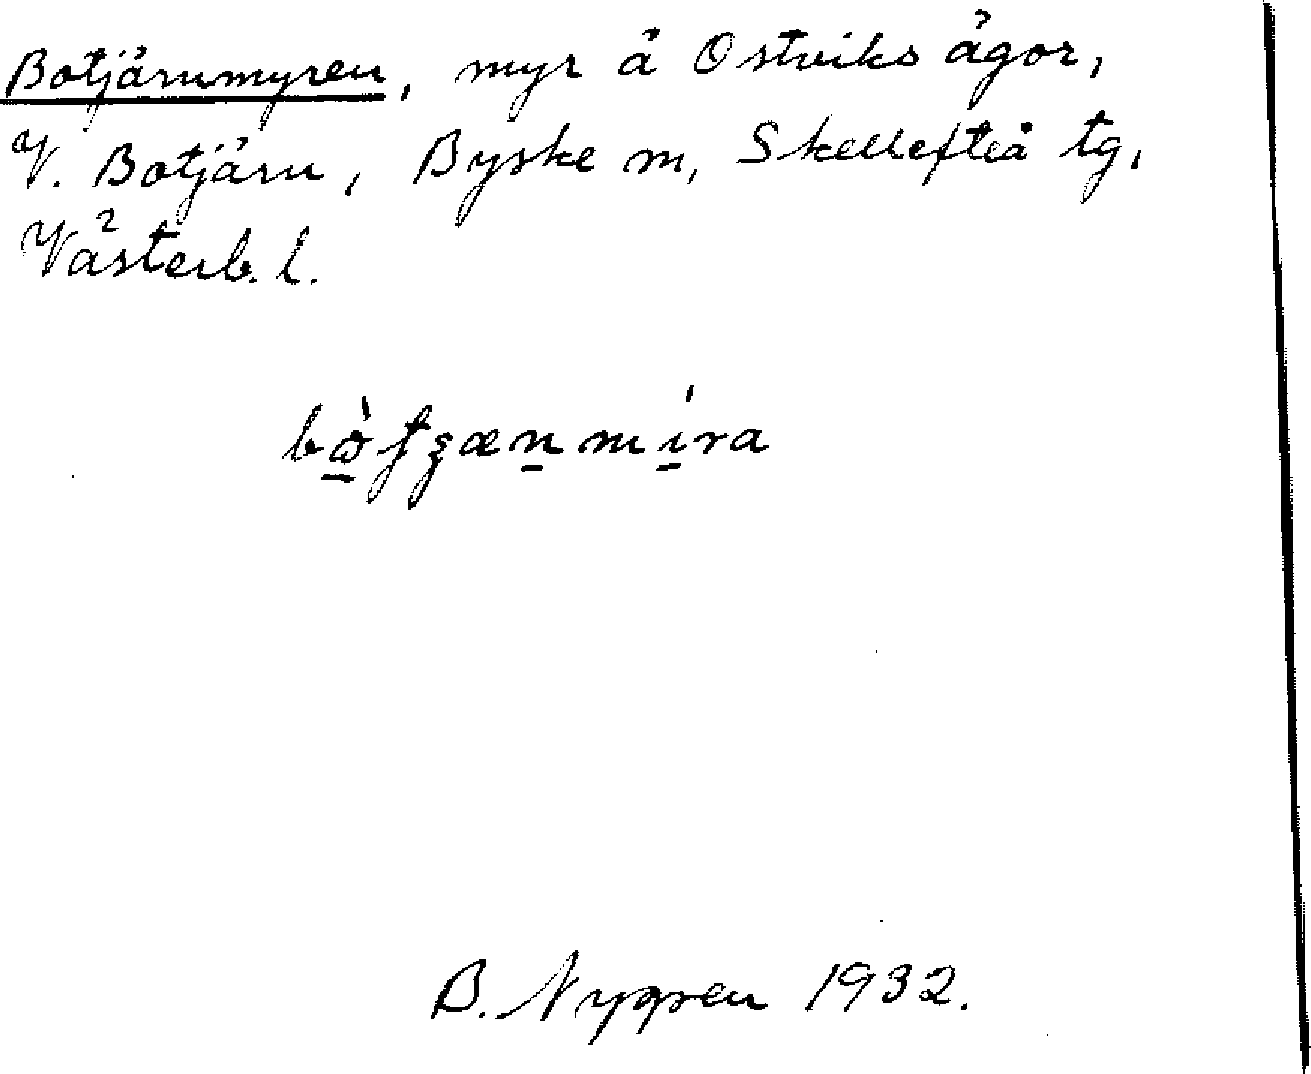 Botjärnmyren, myr å Ostviks ägor,
V. Botjärn, Byske sn, Skellefteå tg,
Västerb. l.
B. Nygren 1932.